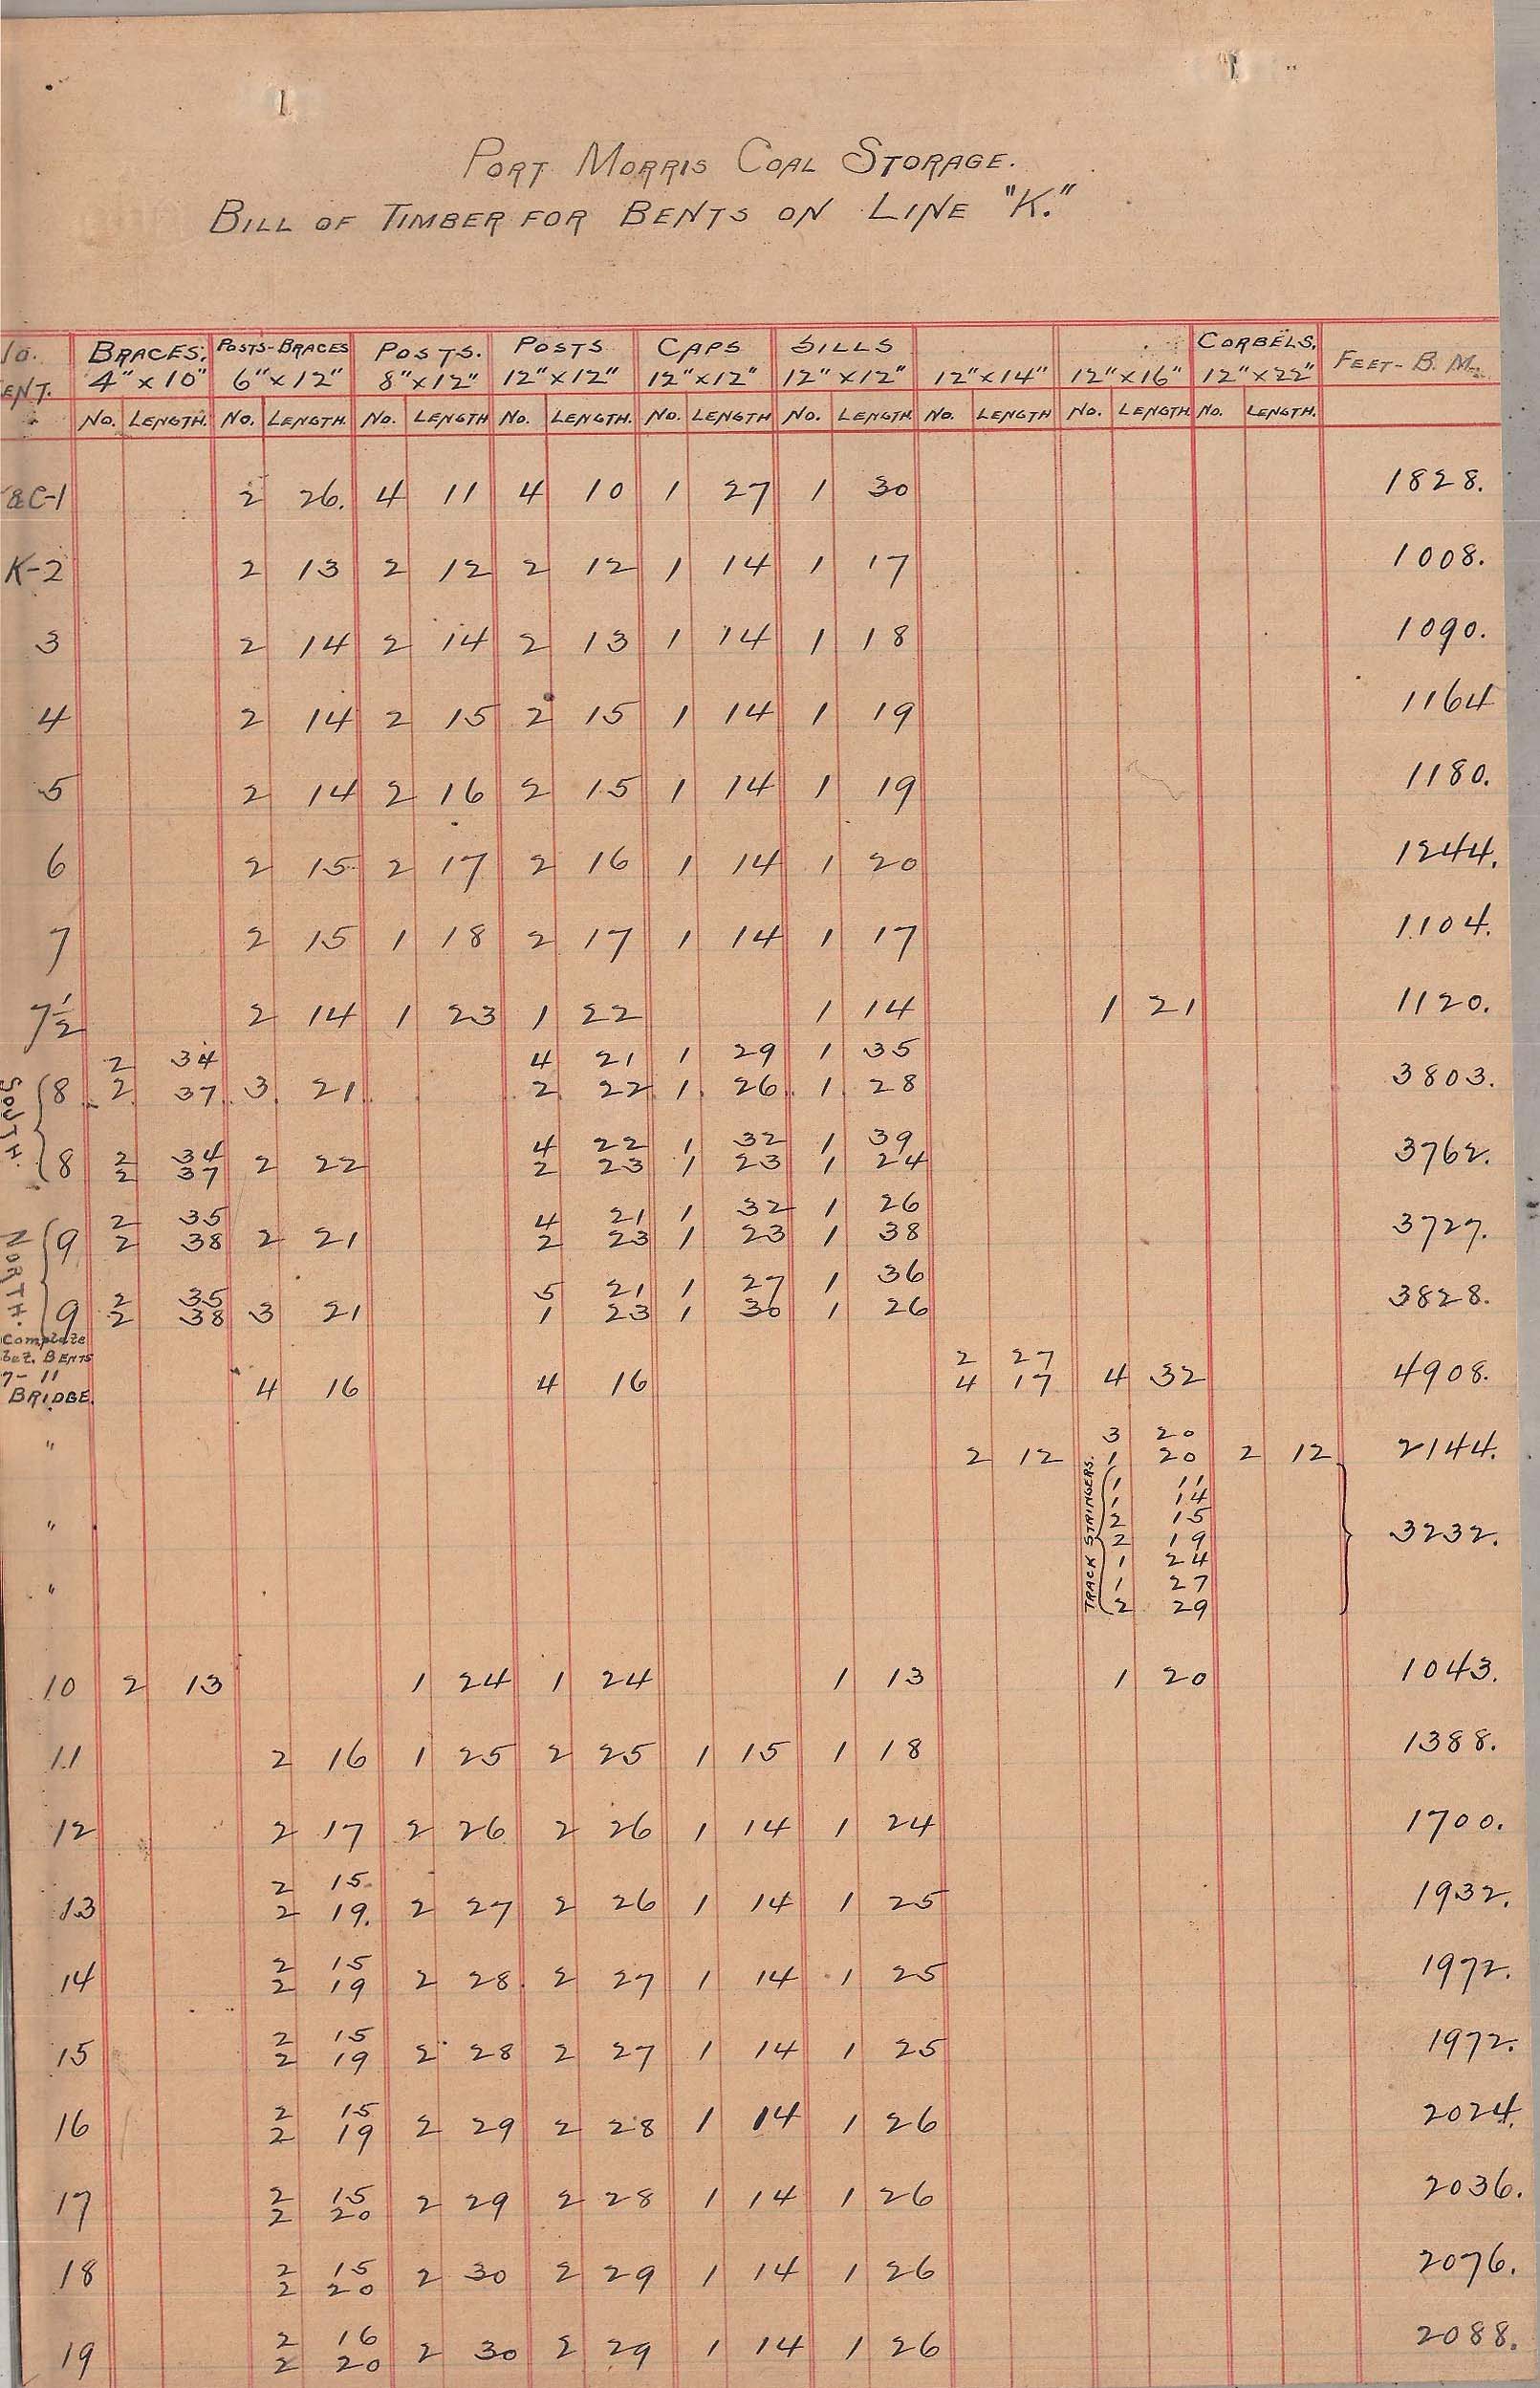 PORT MORRIS COAL STORAGE.
BILL OF TIMBER FOR BENTS ON LINE "K."
BRACES, POSTS-BRACES POSTS. POSTS CAPS SILLS CORBELS, FEET-B.M.
4"x10" 6"x12" 8"x12" 12"x12" 12"x12" 12"x12" 12"x14" 12"x16" 12"x22"
NO. LENGTH. NO. LENGTH. NO. LENGTH NO. LENGTH. NO. LENGTH NO. LENGTH NO. LENGTH NO. LENGTH NO. LENGTH.
&C-1 2 26. 4 11 4 10 1 27 1 30 1828.
K-2 2 13 2 12 2 12 1 14 1 17 1008.
3 2 14 2 14 2 13 1 14 1 18 1090.
4 2 14 2 15 2 15 1 14 1 19 1164
5 2 14 2 16 2 15 1 14 1 19 1180.
6 2 15 2 17 2 16 1 14 1 20 1244.
7 2 15 1 18 2 17 1 14 1 17 1104.
7½ 2 14 1 23 1 22 1 14 1 21 1120.
SOUTH.
2 34 4 21 1 29 1 35
8 2 37 3 21 2 22 1 26 1 28 3803.
2 34 4 22 1 32 1 39
8 2 37 2 22 2 23 1 23 1 24 3762.
NORTH.
2 35 4 21 1 32 1 26
9 2 38 2 21 2 23 1 23 1 38 3727.
2 35 5 21 1 27 1 36
9 2 38 3 21 1 23 1 30 1 26 3828.
Complete
bet. BENTS 2 27
7-11 4 16 4 16 4 17 4 32 4908.
BRIDGE.
3 20
" 2 12 1 20 2 12 2144.
TRACK STRINGERS.
1 11
1 14
" 2 15 3232.
2 19
1 24
" 1 27
2 29
10 2 13 1 24 1 24 1 13 1 20 1043.
11 2 16 1 25 2 25 1 15 1 18 1388.
12 2 17 2 26 2 26 1 14 1 24 1700.
2 15
13 2 19. 2 27 2 26 1 14 1 25 1932.
2 15
14 2 19 2 28. 2 27 1 14 1 25 1972.
2 15
15 2 19 2 28 2 27 1 14 1 25 1972.
2 15
16 2 19 2 29 2 28 1 14 1 26 2024.
2 15
17 2 20 2 29 2 28 1 14 1 26 2036.
2 15
18 2 20 2 30 2 29 1 14 1 26 2076.
2 16
19 2 20 2 30 2 29 1 14 1 26 2088.